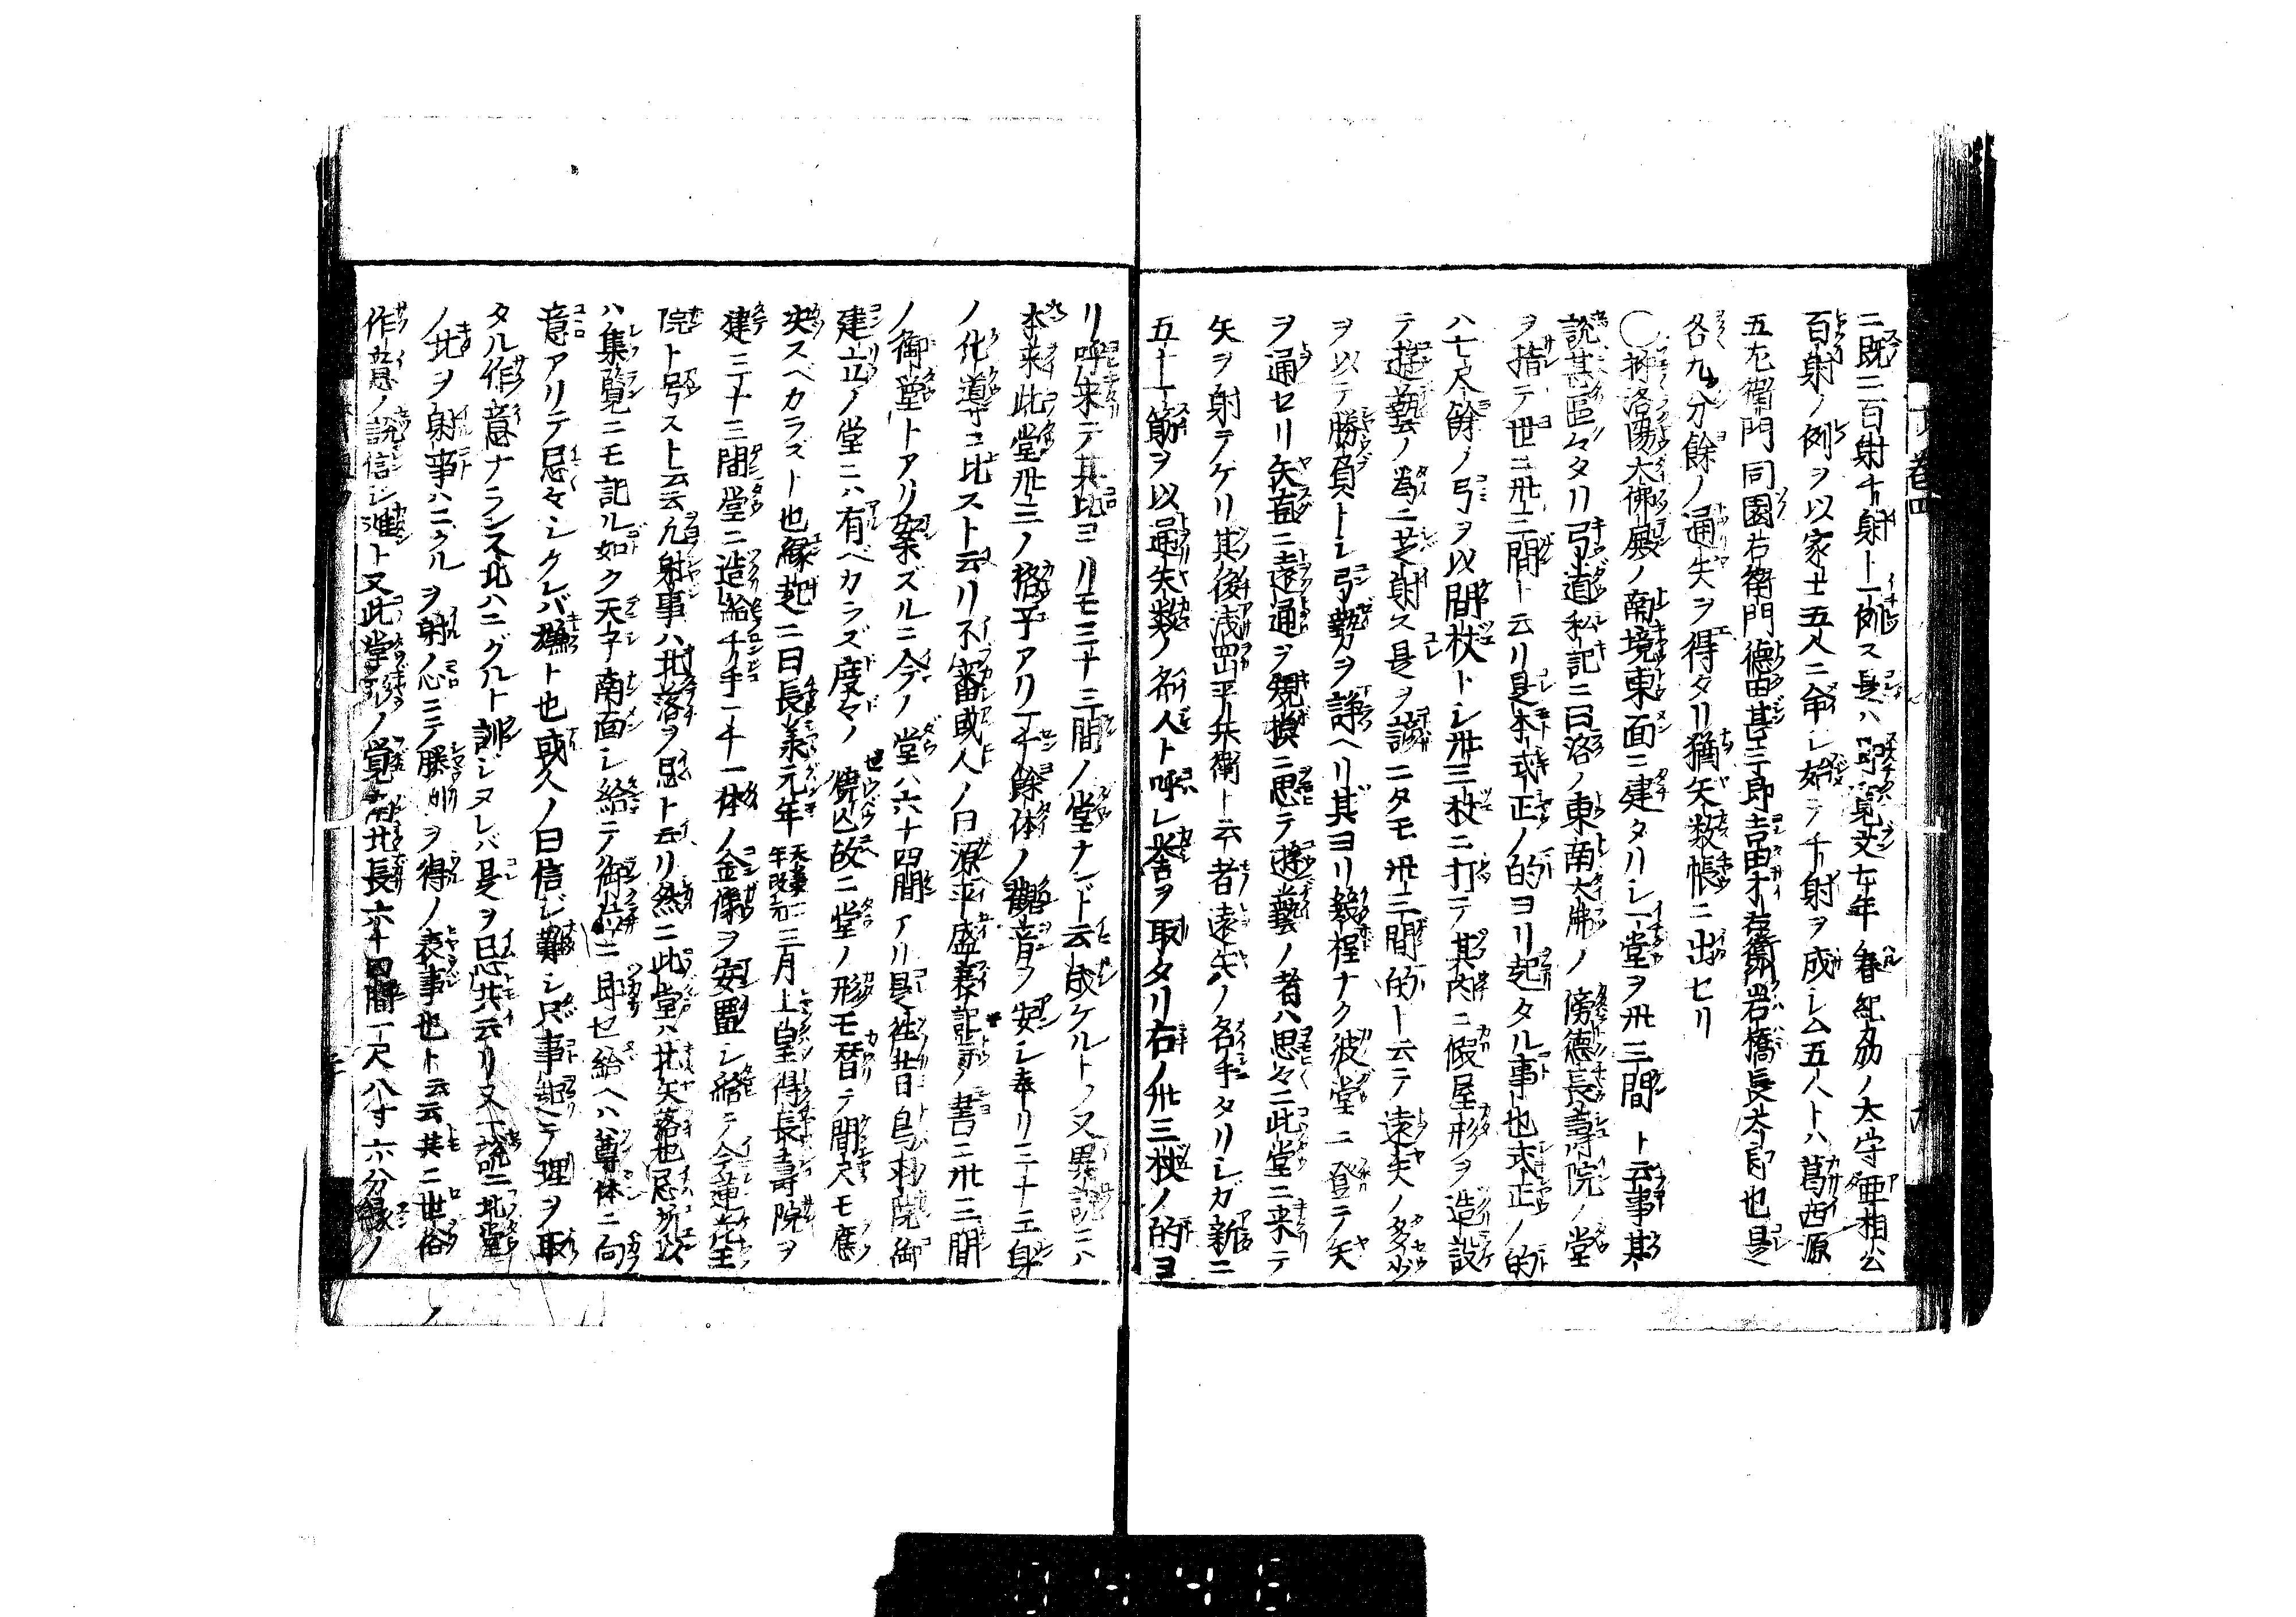 ニ既ニ百射千射ト一例ス是ハ即寛文七年春紀刕ノ太守亜相公
百射ノ例ヲ以家士五人ニ命シ始テ千射ヲ成シム五人トハ葛西源
五左衞門同園右衞門德田甚三郎吉田才右衞門岩橋長太郎也是
各九分餘ノ通矢ヲ得タリ猶矢数帳ニ出セリ
○抑洛陽大佛殿ノ南境東面ニ建タルシ一堂ヲ卅三間ト云事其
説甚區々タリ弓道私記ニ曰洛ノ東南大佛ノ傍德長壽院ノ堂
ヲ指テ世ニ卅三間ト云リ是本式正ノ的ヨリ起タル事也式正ノ的
ハ七尺餘ノ弓ヲ以間杖トシ卅三杖ニ打テ其内ニ假屋形ヲ造設
テ遊藝ノ為ニ芝射ス是ヲ諺ニタモ卅三間的ト云テ遠矢ノ多少
ヲ以テ勝負トシ弓勢力ヲ諍ヘリ其ヨリ幾程ナク彼堂ニ登テ矢
ヲ通セリ矢直ニ遠通ヲ規摸ニ思テ遊藝ノ者ハ思々ニ此堂ニ来テ
矢ヲ射テケリ其後浅岡平兵衛ト云者遠矢ノ名手タリシガ新ニ
五十一筋ヲ以通矢数ノ名人ト呼レ譽ヲ取タリ右ノ卅三杖ノ的ヨ
リ呼来テ其比ヨリモ三十三間ノ堂ナンド云成ケルト又異説ニハ
本来此堂卅三ノ格子アリ一千餘体ノ觀音ヲ安シ奉リ三十三身
ノ化導ニ比スト云リ不審或人ノ曰源平盛衰記等ノ書ニ卅三間
ノ御堂トアリ案ズルニ今ノ堂ハ六十四間アリ是徃昔鳥羽院御
建立ノ堂ニハ有ベカラズ度々ノ囘禄故ニ堂ノ形モ替テ間尺モ應
決スベカラズト也縁起ニ曰長承元年天承二年改元三月上皇得長壽院ヲ
建三十三間堂ニ造給千手一千一体ノ金像ヲ安置シ給テ今蓮花王
院ト号スト云云凡射事ハ北落ヲ忌ト云リ然ニ此堂ハ北矢落也忌所以
ハ集覧ニモ記ル如ク天子ハ南面シ給テ御位ニ即セ給ヘハ尊体ニ向
意アリテ忌々シクレバ嫌ト也或人ノ曰信ジ難シ只事起テノ理ヲ取
タル作意ナランス北ハニグルト訓ジヌレバ是ヲ忌共云リ又一説ニ此堂
ノ北ヲ射事ハニクルヲ射ノ心ニテ勝利ヲ得ノ表事也ト云云其ニ世俗
作意ノ説信シ難ト又此堂形ノ覚南北長六十四間一尺八寸六分縁ノ